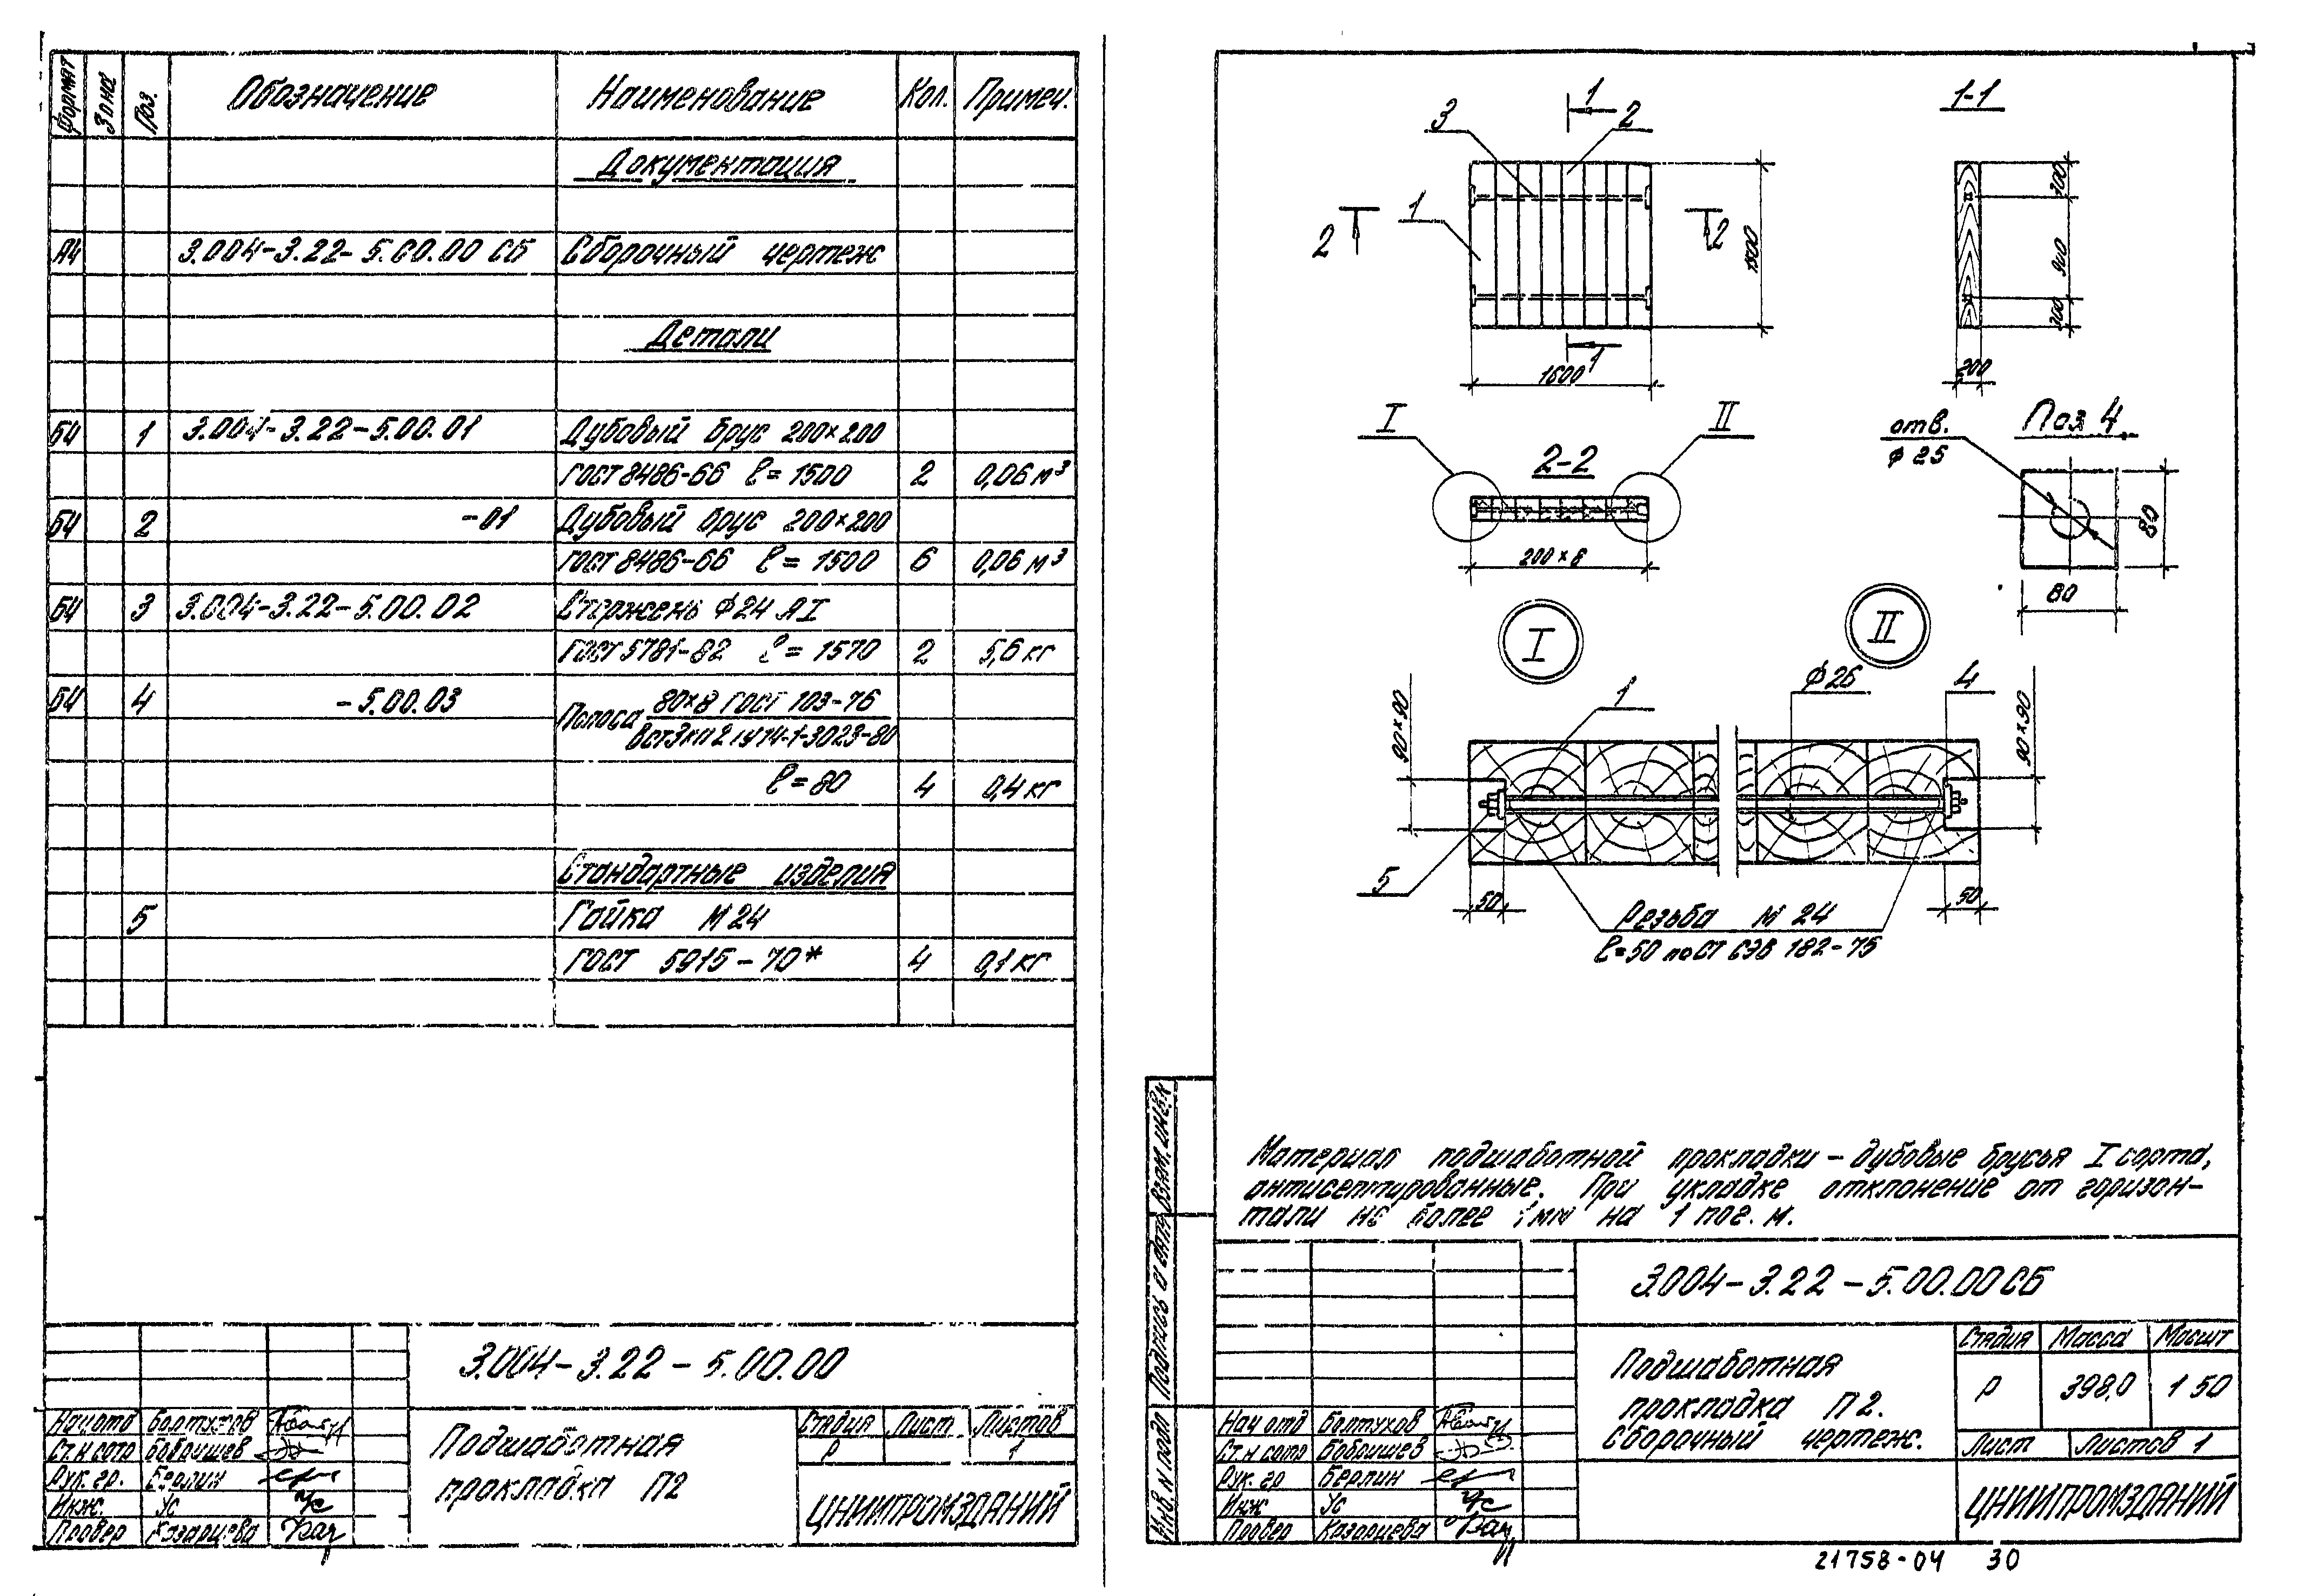 Формат Зона Поз. Обозначение Наименование Кол. Примеч.
Документация
А4 3.004-3.22-5.00.00 СБ Сборочный чертеж
Детали
БЧ 1 3.004-3.22-5.00.01 Дубовый брус 200×200
ГОСТ 8486-66 ℓ=1500 2 0,06 м³
БЧ 2 -01 Дубовый брус 200×200
ГОСТ 8486-66 ℓ=1500 6 0,06 м³
БЧ 3 3.004-3.22-5.00.02 Стержень ф24 АI
ГОСТ 5781-82 ℓ=1570 2 5,6 кг
БЧ 4 -5.00.03 Полоса 80×8 ГОСТ 103-76
ВСт3кп2 ТУ14-1-3023-80
ℓ=80 4 0,4 кг
Стандартные изделия
5 Гайка М24
ГОСТ 5915-70* 4 0,1 кг
3.004-3.22-5.00.00
Нач отд Болтухов
Ст.н сотр Бобрышев
Рук. гр. Берлин
Инж. Ус
Провер Казарцева
Подшаботная
прокладка П2
Стадия Лист Листов
Р 1
ЦНИИПРОМЗДАНИЙ
1
3
2
1
2
2
1
1500
1600
1-1
300
900
300
200
I
II
2-2
200×8
отв.
ф 25
Поз 4.
80
80
I
II
90×90
1
ф26
4
90×90
5
50
50
Резьба М 24
ℓ=50 по СТ СЭВ 182-75
Материал подшаботной прокладки – дубовые брусья I сорта,
антисептированные. При укладке отклонение от горизон-
тали не более 1мм на 1 пог. м.
Инв. N подл Подпись и дата Взам. инв. N
3.004-3.22-5.00.00 СБ
Нач отд Болтухов
Ст. н сотр Бобрышев
Рук. гр Берлин
Инж Ус
Провер Казарцева
Подшаботная
прокладка П2.
Сборочный чертеж.
Стадия Масса Масшт
Р 398,0 1 50
Лист Листов 1
ЦНИИПРОМЗДАНИЙ
21758-04 30